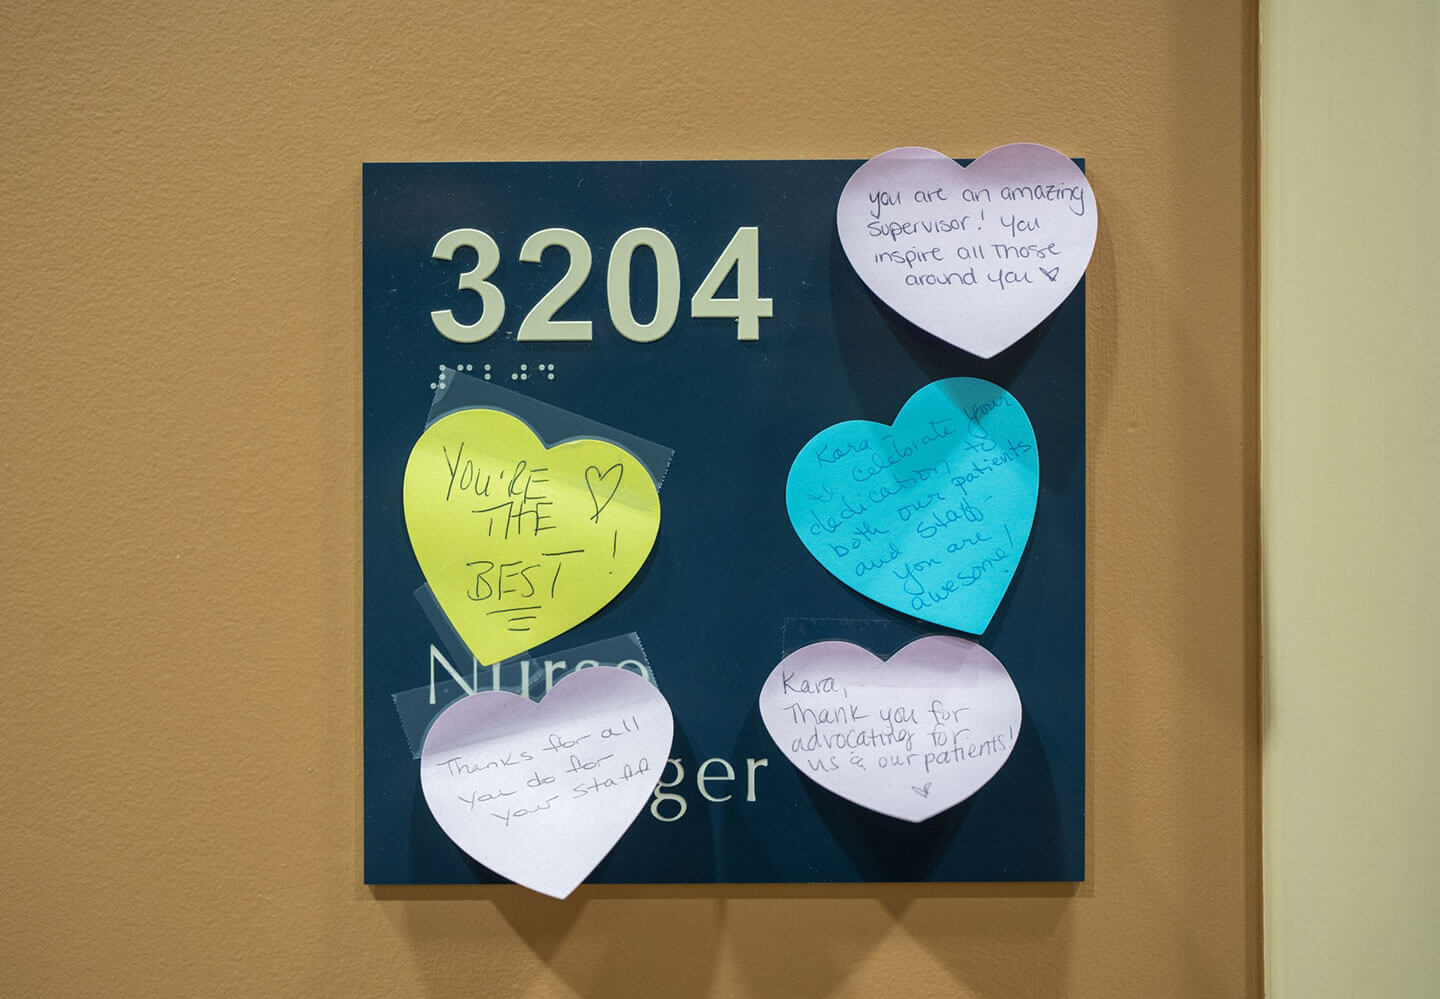 3204
you are an amazing
supervisor! You
inspire all those
around you
YOU'RE
THE
BEST!
Kara -
celebrate your
dedication to
both our patients
and staff -
you are
awesome!
Nurse
ger
Thanks for all
you do for
your staff
Kara,
Thank you for
advocating for
us & our patients!